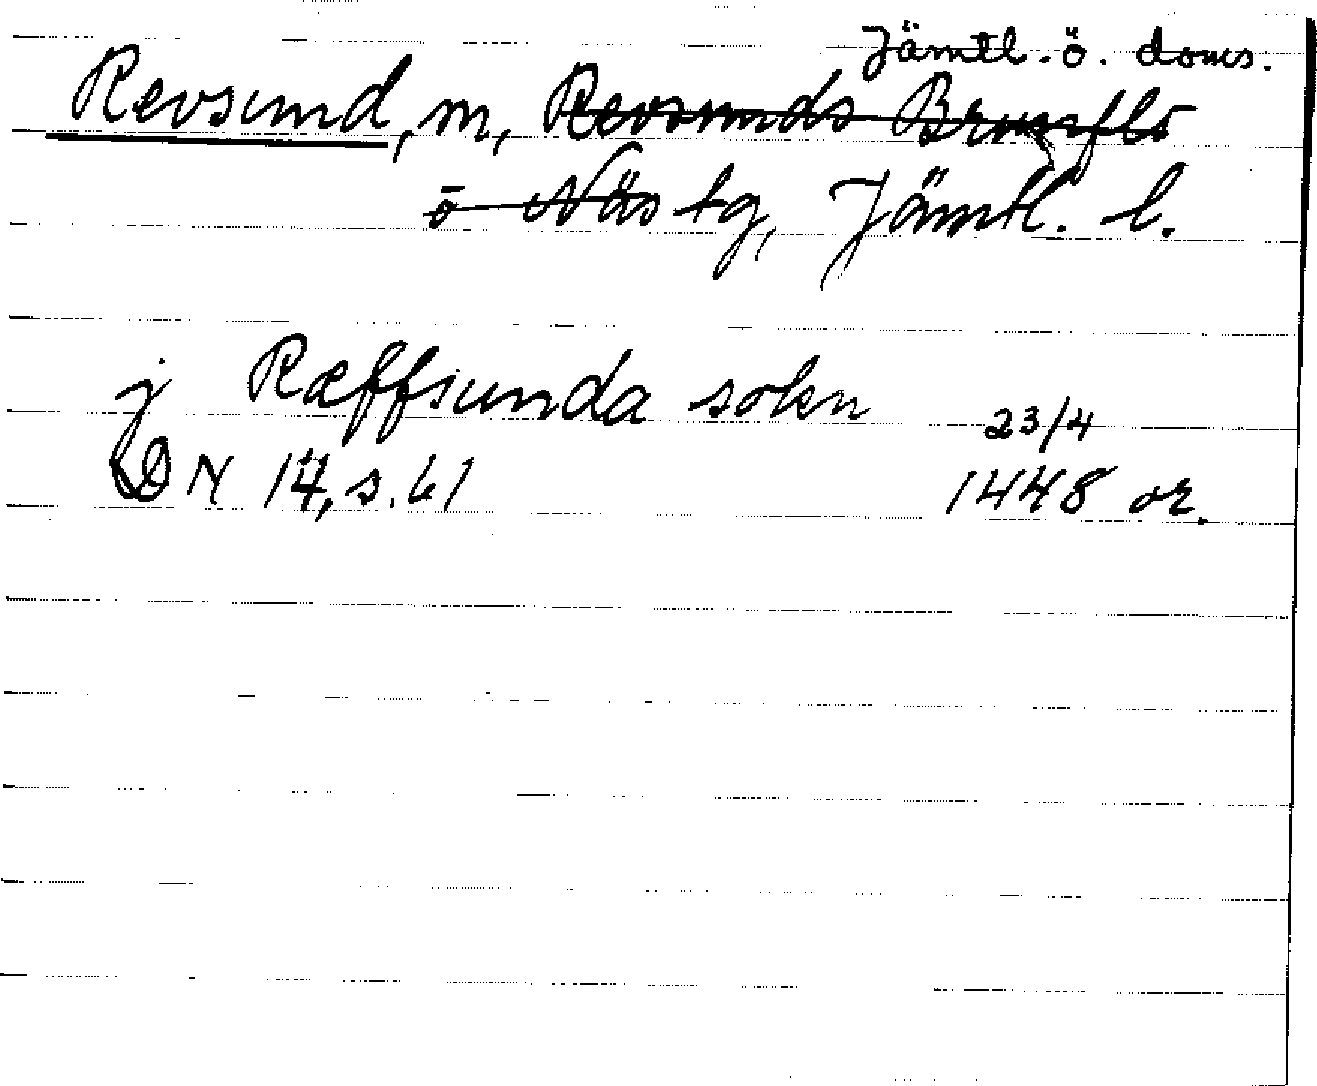 Jämtl. ö. doms.
Revsund, m, Revsunds Brunflo
o Näs tg, Jämtl. l.
j Ræffsunda sokn
23/4
DN 14, s. 61 1448 or.